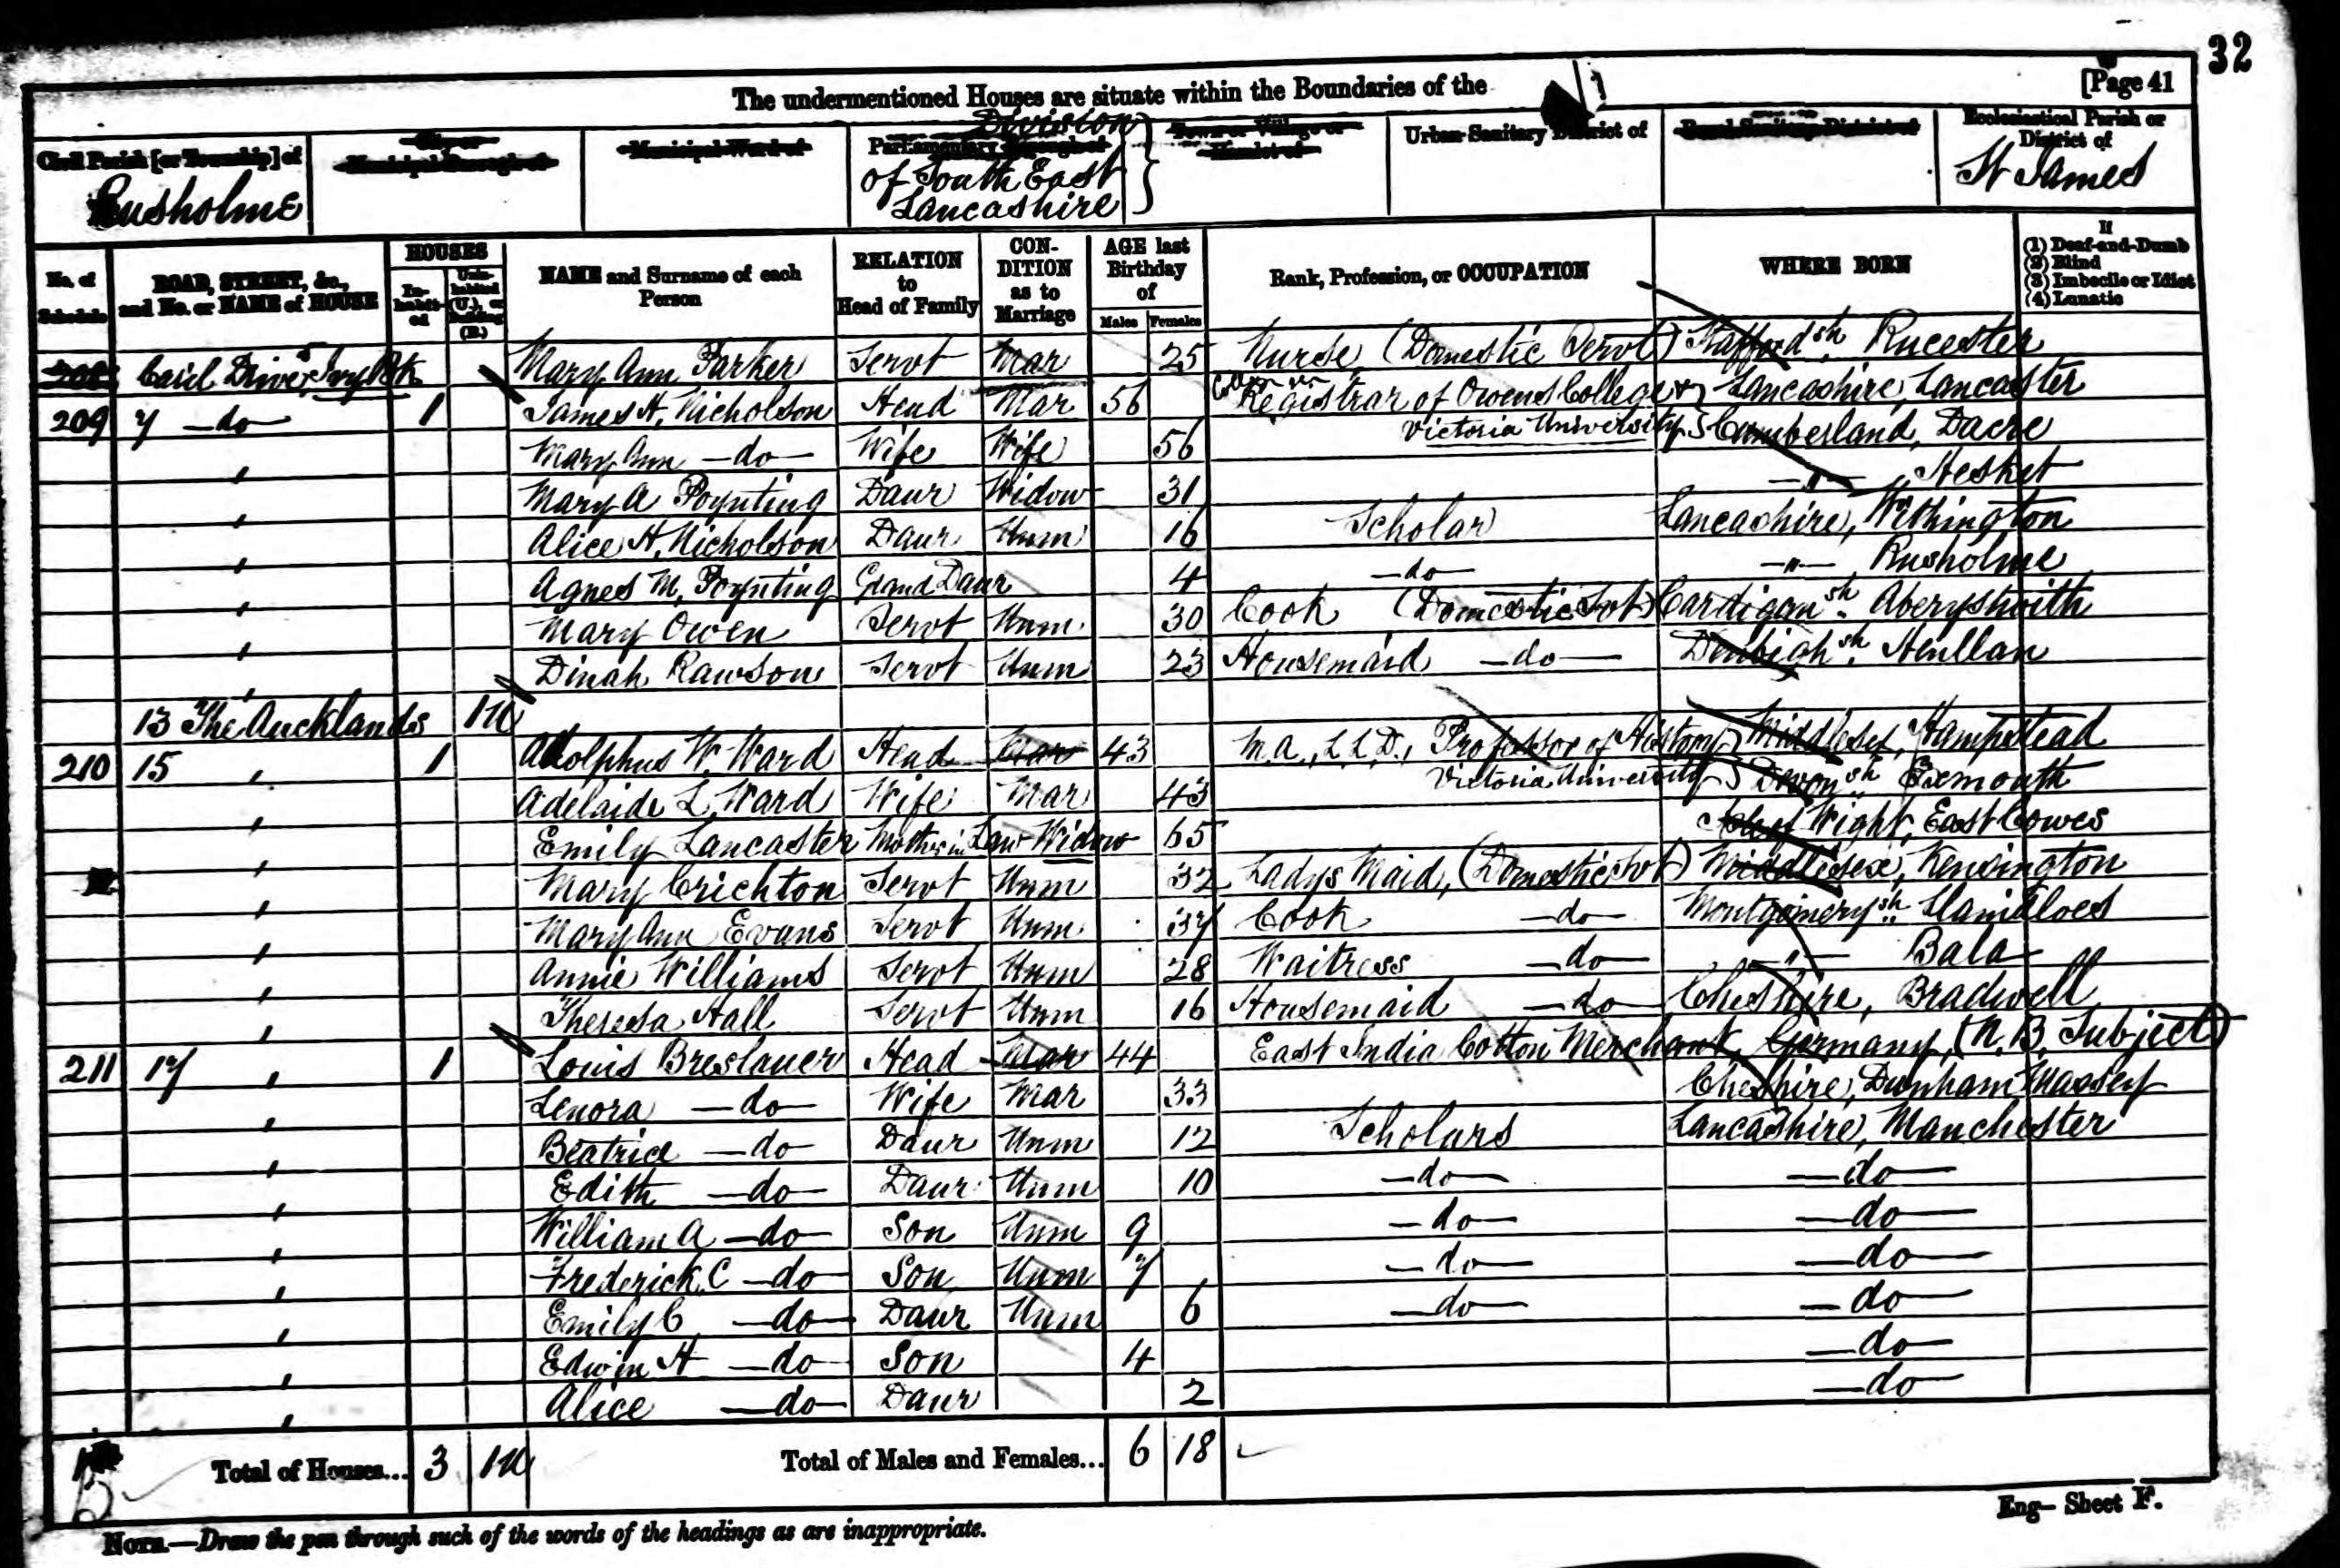 32
The undermentioned Houses are situate within the Boundaries of the
[Page 41
Civil Parish [or Township] of
Rusholme
City or Municipal Borough of
Municipal Ward of
Division
Parliamentary Borough of
of South East
Lancashire
Town or Village or Hamlet of
Urban Sanitary District of
Rural Sanitary District of
Ecclesiastical Parish or District of
St James
No. of Schedule
ROAD, STREET, &c., and No. or NAME of HOUSE
HOUSES
In-habit-ed
Unin-habited (U.), or Building (B.)
NAME and Surname of each Person
RELATION to Head of Family
CON-DITION as to Marriage
AGE last Birthday of
Males Females
Rank, Profession, or OCCUPATION
WHERE BORN
If
(1) Deaf-and-Dumb
(2) Blind
(3) Imbecile or Idiot
(4) Lunatic
208 5 Mary Ann Parker Servt Mar 25 Nurse, (Domestic Servt) Staffordsh. Rucester
209 7 -do- 1 James H. Nicholson Head Mar 56 Registrar of Owens College & Lancashire, Lancaster
Victoria University
Mary Ann -do- Wife Wife 56 Cumberland, Dacre
Mary A Poynting Daur Widow 31 -"- Hesket
Alice H. Nicholson Daur Unm 16 Scholar Lancashire, Withington
Agnes M. Poynting Grand Daur 4 -do- -"- Rusholme
Mary Owen Servt Unm 30 Cook (Domestic Svt) Cardigansh. Aberystwith
Dinah Rawson Servt Unm 23 Housemaid -do- Denbighsh. Henllan
13 The Aucklands 1U
210 15 " 1 Adolphus W. Ward Head Mar 43 M.A., L.L.D., Professor of History Middlesex, Hampstead
Victoria University
Adelaide L. Ward Wife Mar 43 Devonsh. Exmouth
Emily Lancaster Mother in Law Widow 65 Isle of Wight, East Cowes
Mary Crichton Servt Unm 32 Ladys Maid, (Domestic Svt) Middlesex, Kensington
Mary Ann Evans Servt Unm 37 Cook -do- Montgomerysh. Llanidloes
Annie Williams Servt Unm 28 Waitress -do- -"- Bala
Theresa Hall Servt Unm 16 Housemaid -do- Cheshire, Bradwell
211 17 " 1 Louis Breslauer Head Mar 44 East India Cotton Merchant Germany, (N. B. Subject)
Lenora -do- Wife Mar 33 Cheshire, Dunham Massey
Beatrice -do- Daur Unm 12 Scholars Lancashire, Manchester
Edith -do- Daur Unm 10 -do- -do-
William A -do- Son Unm 9 -do- -do-
Frederick C -do- Son Unm 7 -do- -do-
Emily C -do- Daur Unm 6 -do- -do-
Edwin H -do- Son 4 -do-
Alice -do- Daur 2 -do-
Total of Houses... 3 1U Total of Males and Females... 6 18
NOTE.—Draw the pen through such of the words of the headings as are inappropriate.
Eng— Sheet F.